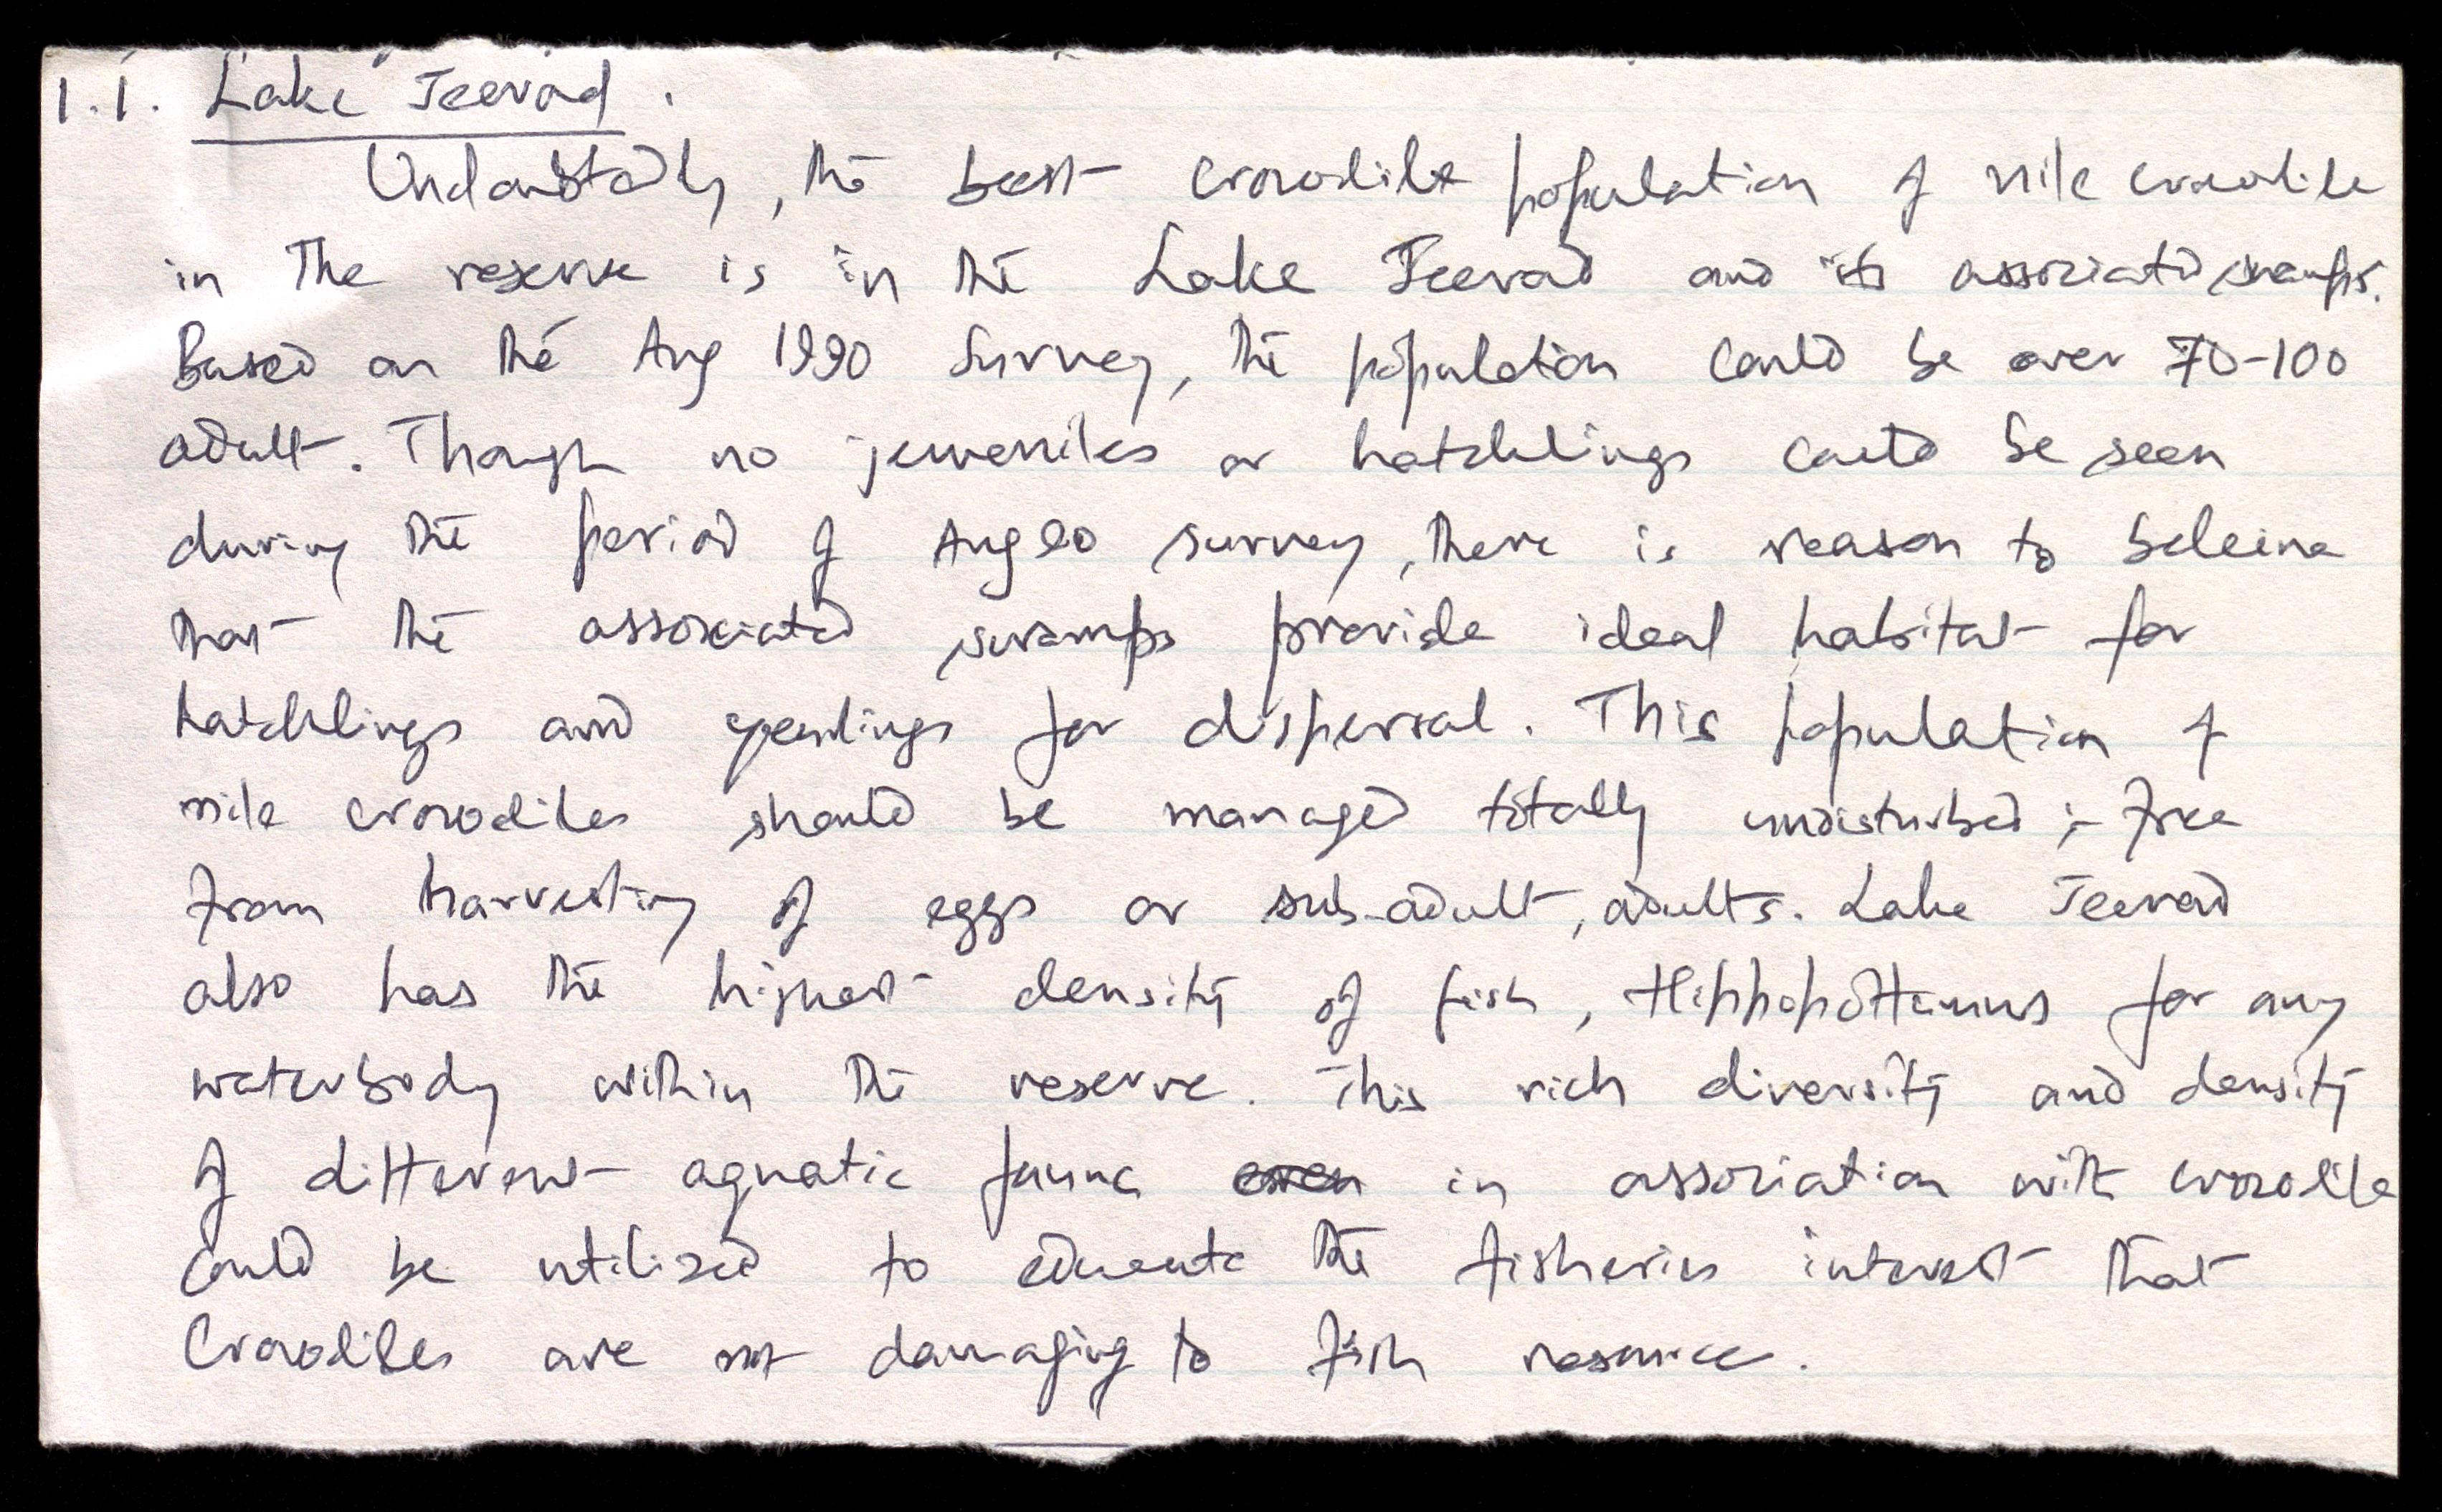 1.1. Lake Jeevad.
Undoubtedly, the best crocodile population of nile crocodile
in the reserve is in the Lake Jeevad and its associated swamps.
Based on the Aug 1990 Survey, the population could be over 70-100
adult. Though no juveniles or hatchlings could be seen
during the period of Aug 90 survey, there is reason to beleive
that the associated swamps provide ideal habitat for
hatchlings and yearlings for dispersal. This population of
nile crocodiles should be managed totally undisturbed; free
from harvesting of eggs or sub-adult, adults. Lake Jeevad
also has the highest density of fish, Hippopottamus for any
waterbody within the reserve. This rich diversity and density
of different aquatic fauna even in association with crocodile
could be utilized to educate the fisheries interest that
Crocodiles are not damaging to fish resource.